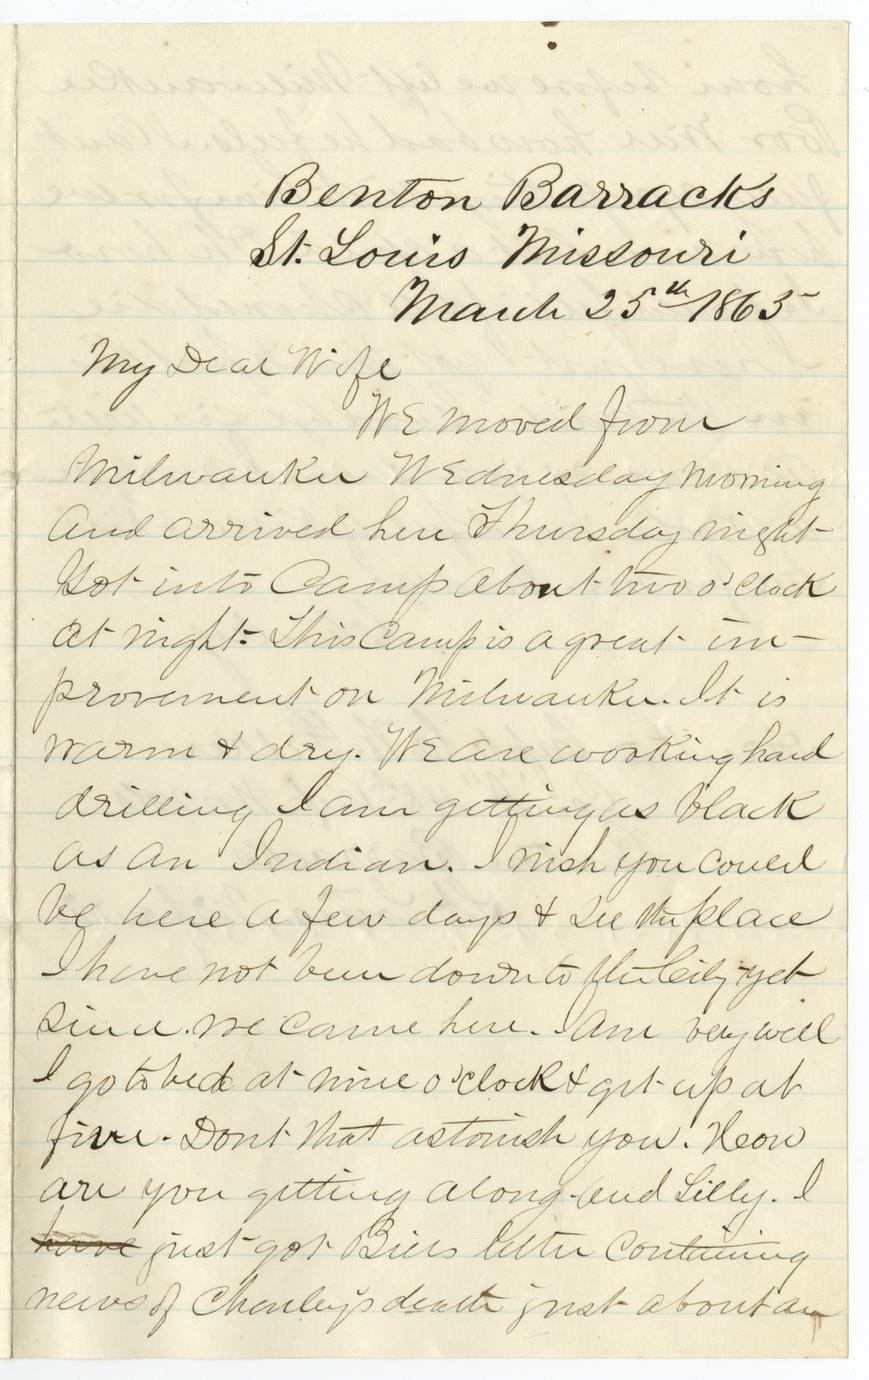 Benton Barracks
St. Louis Missouri
March 25th 1865
My Dear Wife
We moved from
Milwaukee Wednesday morning
And arrived here Thursday night
Got into Camp about two o'clock
at night. This Camp is a great im-
provement on Milwaukee. It is
warm & dry. We are working hard
drilling I am getting as black
as an Indian. I wish you could
be here a few days & see the place
I have not been down to the City yet
since we came here. I Am very well
I go to bed at nine o'clock & get up at
five. Dont that astonish you. How
are you getting along and Lilly. I
have just got Bills letter containing
news of Charley's death just about an